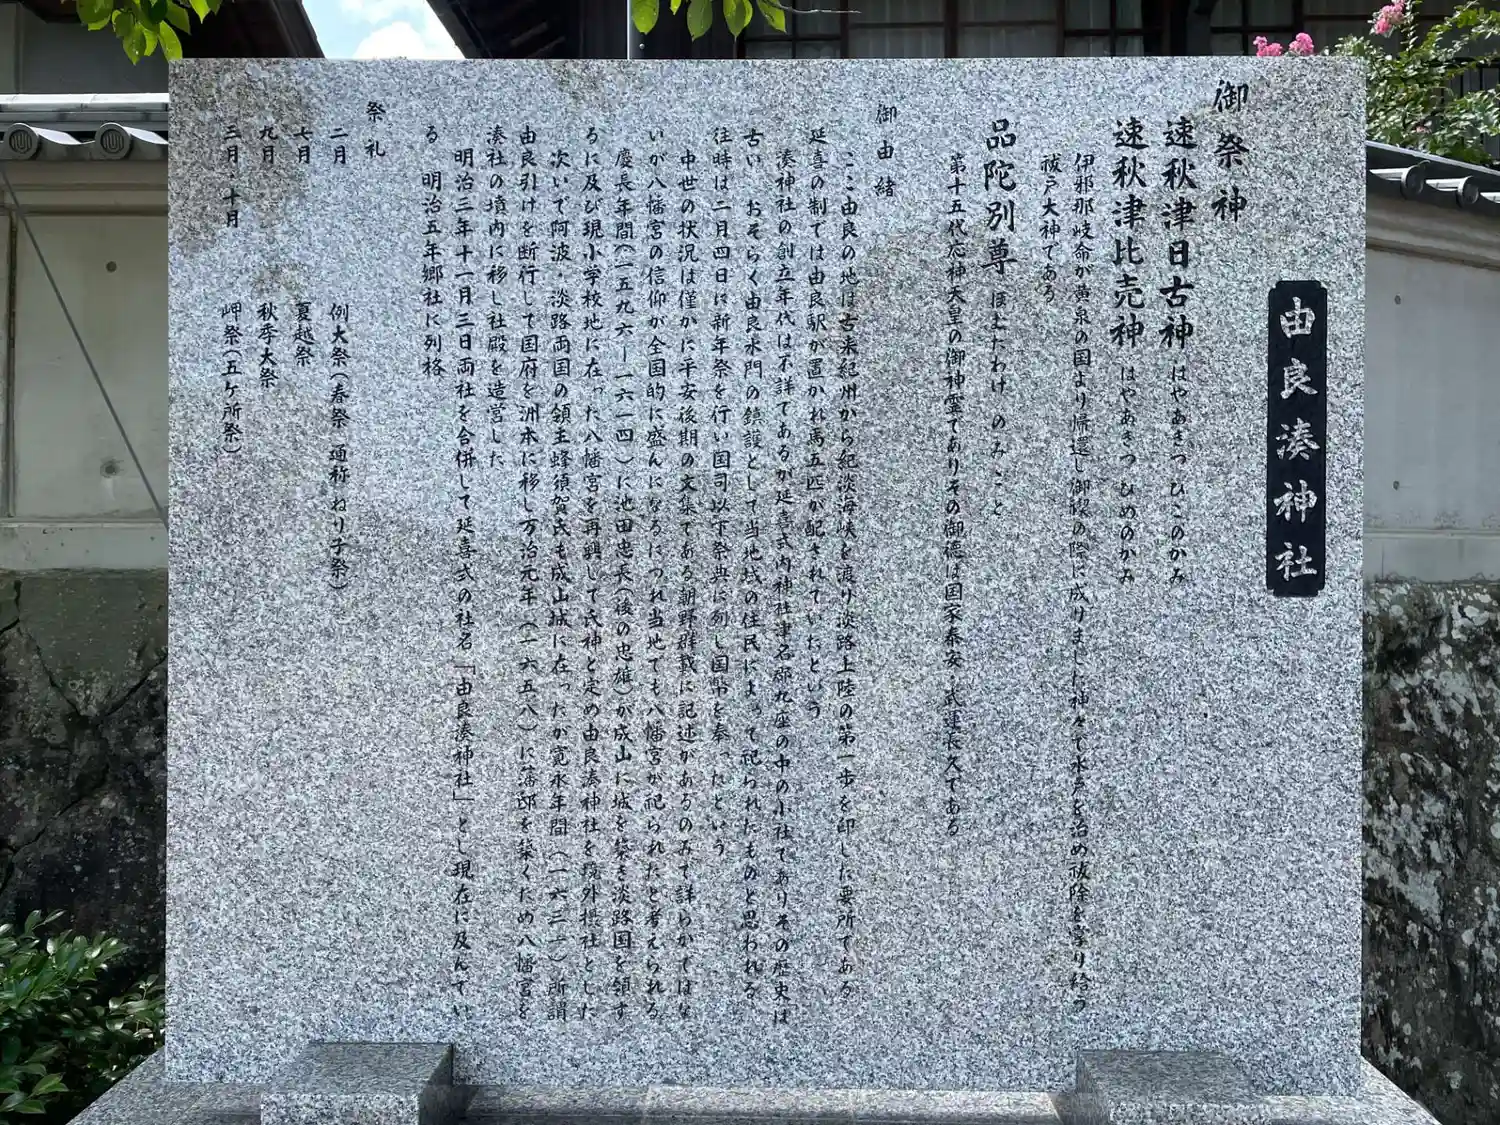 由良湊神社
御祭神
速秋津日古神 はやあきつ ひこのかみ
速秋津比売神 はやあきつ ひめのかみ
伊邪那岐命が黄泉の国より帰還し御禊の際に成りました神々で水戸を治め祓除を掌り給う
祓戸大神である
品陀別尊 ほむだわけ のみこと
第十五代応神天皇の御神霊でありその御徳は国家泰安・武運長久である
御由緒
ここ由良の地は古来紀州から紀淡海峡を渡り淡路上陸の第一歩を印した要所である
延喜の制では由良駅が置かれ馬五匹が配されていたという
湊神社の創立年代は不詳であるが延喜式内神社津名郡九座の中の小社でありその歴史は
古い おそらく由良水門の鎮護として当地域の住民によって祀られたものと思われる
往時は二月四日に新年祭を行い国司以下祭典に列し国幣を奉ったという
中世の状況は僅かに平安後期の文集である朝野群載に記述があるのみで詳らかではな
いが八幡宮の信仰が全国的に盛んになるにつれ当地でも八幡宮が祀られたと考えられる
慶長年間(一五九六―一六一四)に池田忠長(後の忠雄)が成山に城を築き淡路国を領す
るに及び現小学校地に在った八幡宮を再興して氏神と定め由良湊神社を境外摂社とした
次いで阿波・淡路両国の領主蜂須賀氏も成山城に在ったが寛永年間(一六三一)所謂
由良引けを断行して国府を洲本に移し万治元年(一六五八)に藩邸を築くため八幡宮を
湊社の境内に移し社殿を造営した
明治三年十一月三日両社を合併して延喜式の社名「由良湊神社」とし現在に及んでい
る 明治五年郷社に列格
祭礼
二月 例大祭(春祭 通称 ねり子祭)
七月 夏越祭
九月 秋季大祭
三月・十月 岬祭(五ケ所祭)